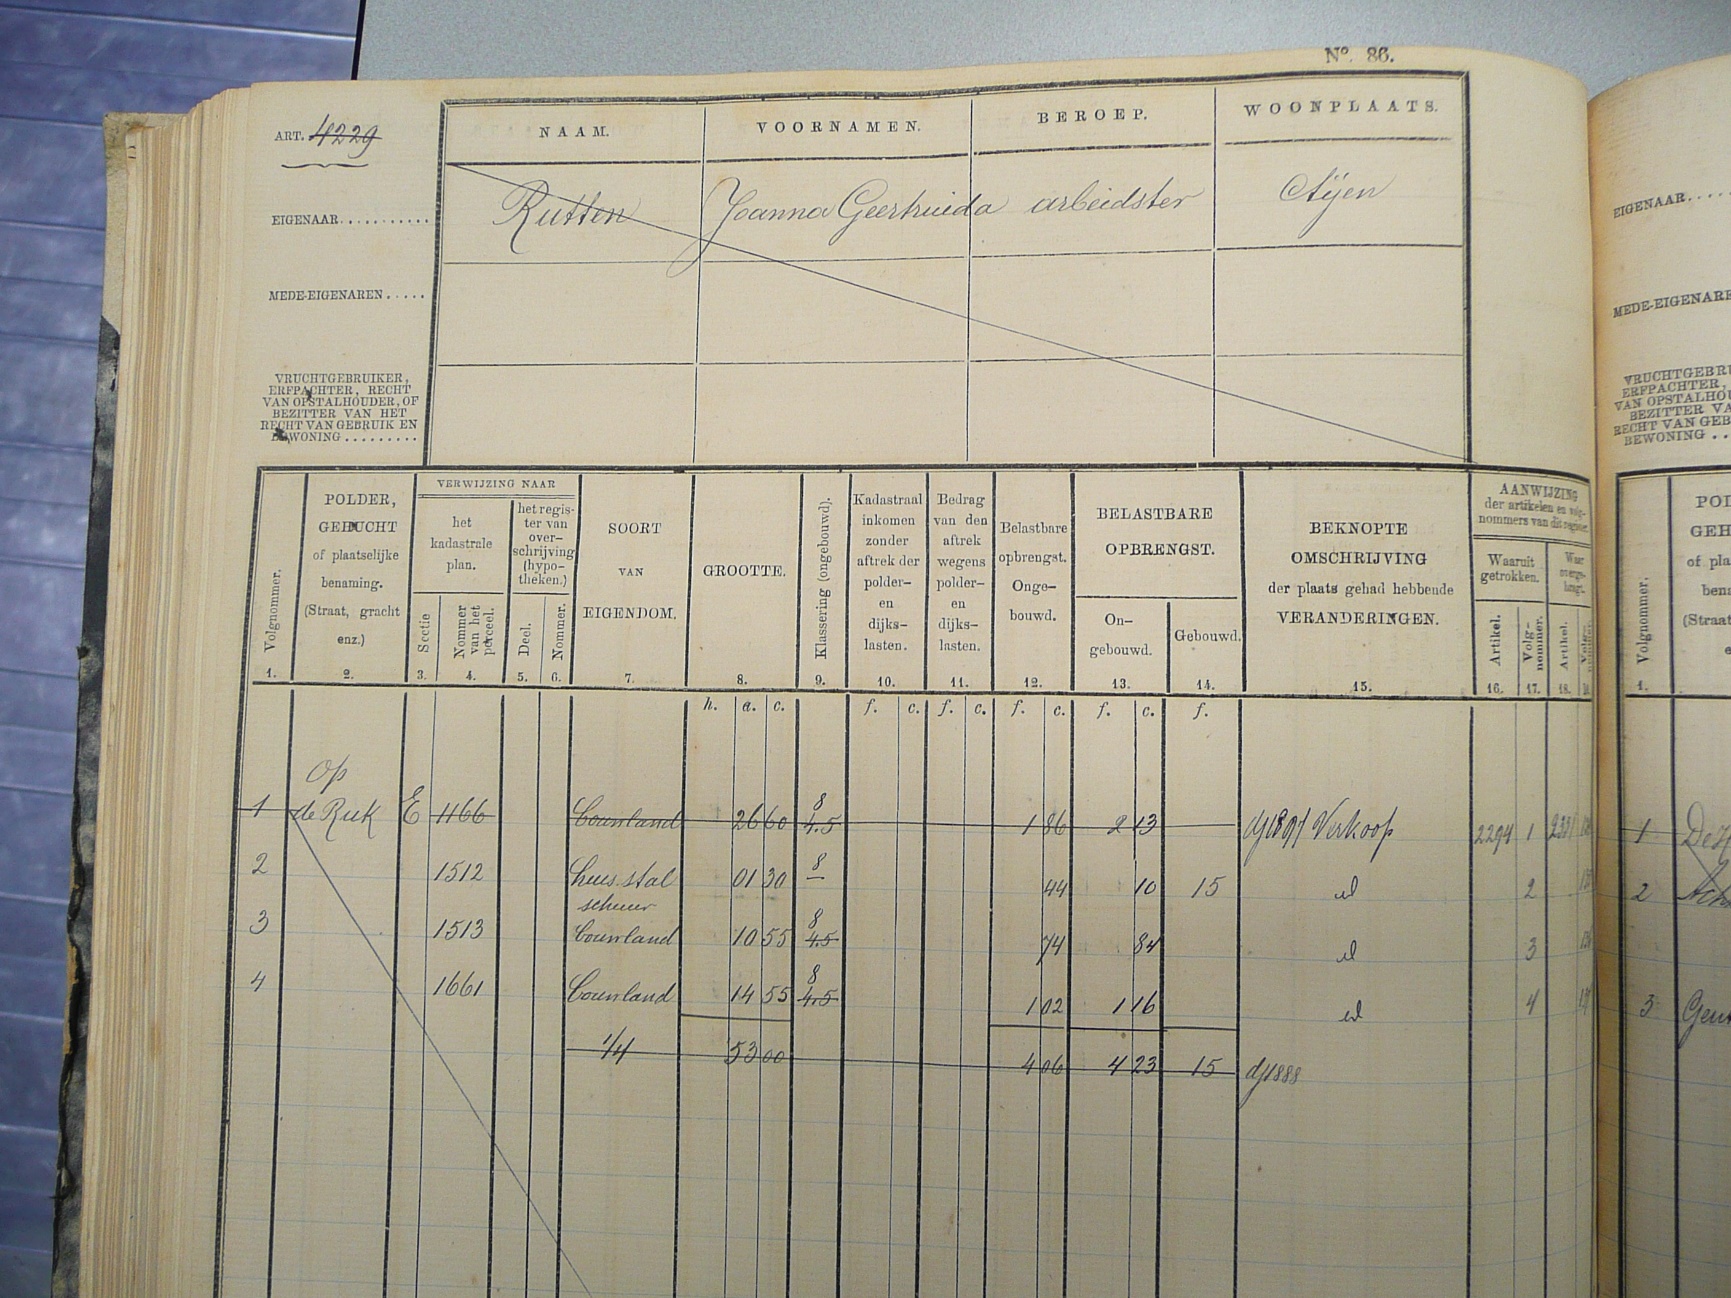 No. 86.
ART. 4229
NAAM. VOORNAMEN. BEROEP. WOONPLAATS.
EIGENAAR........... Rutten Joanna Geertruida arbeidster Aijen
MEDE-EIGENAREN.....
VRUCHTGEBRUIKER,
ERFPACHTER, RECHT
VAN OPSTALHOUDER, OF
BEZITTER VAN HET
RECHT VAN GEBRUIK EN
BEWONING.........
Volgnommer.
1.
POLDER,
GEHUCHT
of plaatselijke
benaming.
(Straat, gracht
enz.)
2.
VERWIJZING NAAR
het
kadastrale
plan.
Sectie
3.
Nommer
van het
perceel.
4.
het regis-
ter van
over-
schrijving
(hypo-
theken.)
Deel.
5.
Nommer.
6.
SOORT
VAN
EIGENDOM.
7.
GROOTTE.
8.
Klasseering (ongebouwd).
9.
Kadastraal
inkomen
zonder
aftrek der
polder-
en
dijks-
lasten.
10.
Bedrag
van den
aftrek
wegens
polder-
en
dijks-
lasten.
11.
Belastbare
opbrengst.
Onge-
bouwd.
12.
BELASTBARE
OPBRENGST.
On-
gebouwd.
13.
Gebouwd.
14.
BEKNOPTE
OMSCHRIJVING
der plaats gehad hebbende
VERANDERINGEN.
15.
AANWIJZING
der artikelen en volg-
nommers van dit register.
Waaruit
getrokken.
Artikel.
16.
Volg-
nommer.
17.
Waar
overge-
bragt.
Artikel.
18.
h. a. c. f. c. f. c. f. c. f. c. f.
op
1 de Ruk E 1166 Bouwland 26 60 8 4.5 1 86 2 13 dj1897 Verkoop 2294 1
2 1512 huis stal 01 30 8 44 10 15 id 2
schuur
3 1513 Bouwland 10 55 8 4.5 74 84 id 3
4 1661 Bouwland 14 55 8 4.5 1 02 1 16 id 4
1/4 53 00 4 06 4 23 15 dj1888
EIGENAAR....
MEDE-EIGENARE
VRUCHTGEBRU
ERFPACHTER,
VAN OPSTALHOU
BEZITTER VA
RECHT VAN GEB
BEWONING ..
Volgnommer.
1.
POL
GEH
of pla
bena
(Straat
e
1
2
3